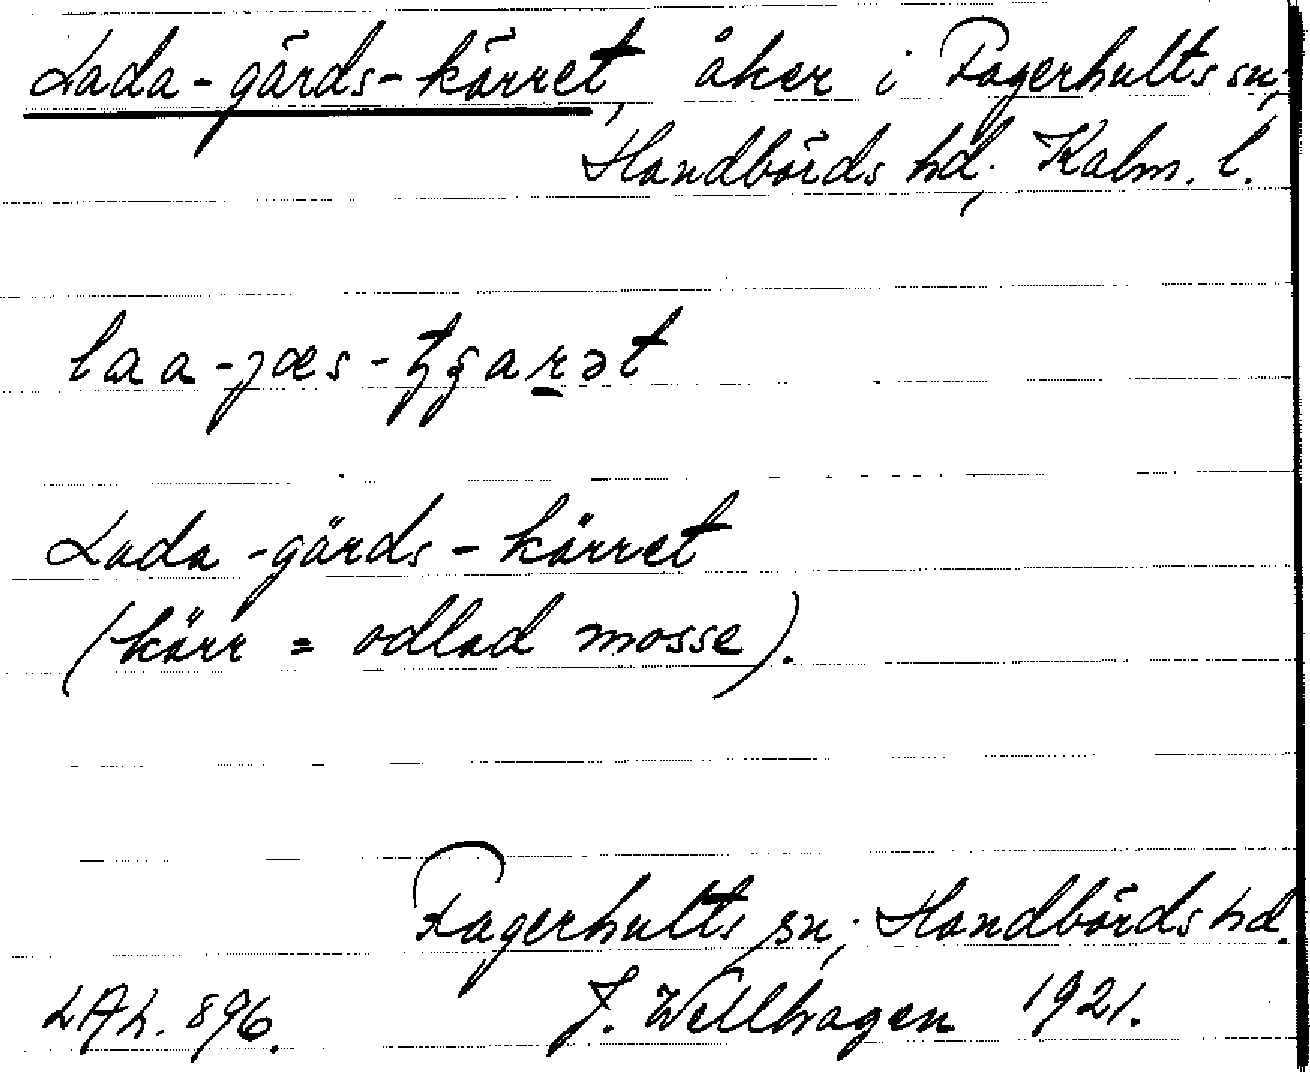 Lada-gårds-kärret, åker i Fagerhults sn,
Handbörds hd, Kalm. l.
laa-jœs-tʂarət
Lada-gärds-kärret
(kärr = odlad mosse).
Fagerhults sn, Handbörds hd.
LAL. 896.
J. Wellhagen 1921.